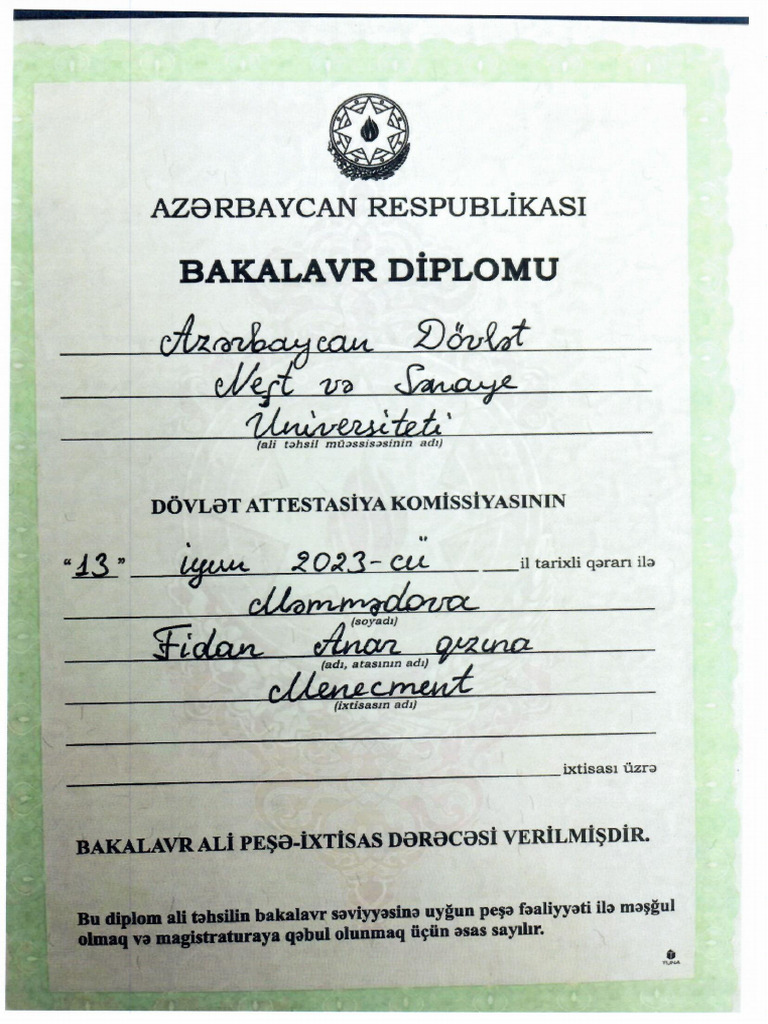 AZƏRBAYCAN RESPUBLİKASI
BAKALAVR DİPLOMU
Azərbaycan Dövlət
Neft və Sənaye
Universiteti
(ali təhsil müəssisəsinin adı)
DÖVLƏT ATTESTASİYA KOMİSSİYASININ
“13” iyun 2023-cü il tarixli qərarı ilə
Məmmədova
(soyadı)
Fidan Anar qızına
(adı, atasının adı)
Menecment
(ixtisasın adı)
ixtisası üzrə
BAKALAVR ALİ PEŞƏ-İXTİSAS DƏRƏCƏSİ VERİLMİŞDİR.
Bu diplom ali təhsilin bakalavr səviyyəsinə uyğun peşə fəaliyyəti ilə məşğul
olmaq və magistraturaya qəbul olunmaq üçün əsas sayılır.
TUNA